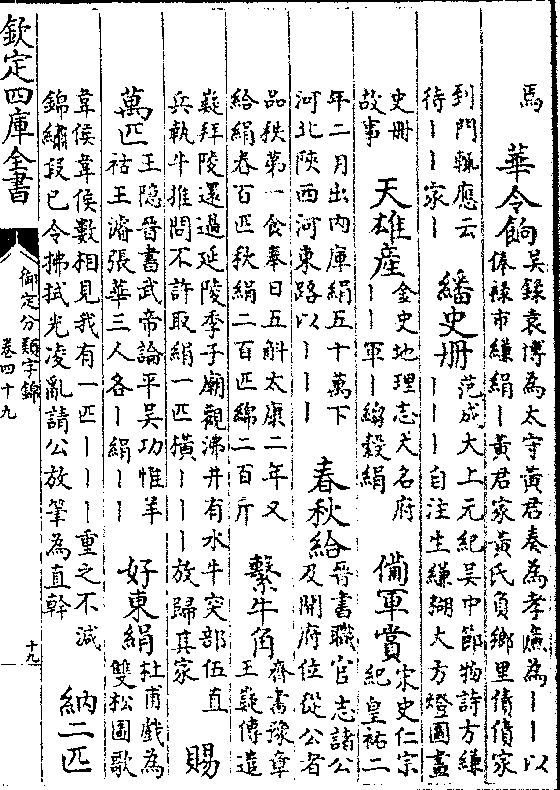 馬
華令餉
吳錄袁博為太守黃君奏為孝廉為丨丨以
俸祿市縑絹丨黃君家黃氏負鄉里債債家
到門輒應云
待丨丨家丨
繙史冊
范成大上元紀吳中節物詩方縑
丨丨丨自注生縑糊大方燈圖畫
史冊
故事
天雄產
金史地理志大名府
丨丨軍丨縐縠絹
備軍賞
宋史仁宗
紀皇祐二
年二月出內庫絹五十萬下
河北陜西河東路以丨丨丨
春秋給
晉書職官志諸公
及開府位從公者
品秩第一食奉日五斛太康二年又
給絹春百匹秋絹二百匹綿二百斤
繫牛角
齊書豫章
王嶷傳遣
嶷拜陵還過延陵季子廟觀沸井有水牛突部伍直
兵執牛推問不許取絹一匹橫丨丨丨放歸其家
賜
萬匹
王隐晉書武帝論平吳功惟羊
祜王濬張華三人各丨絹丨丨
好東絹
杜甫戲為
雙松圖歌
韋侯韋侯數相見我有一匹丨丨丨重之不減
錦繡段已令拂拭光凌亂請公放筆為直幹
納二匹
欽定四庫全書
御定分類字錦
卷四十九
十九